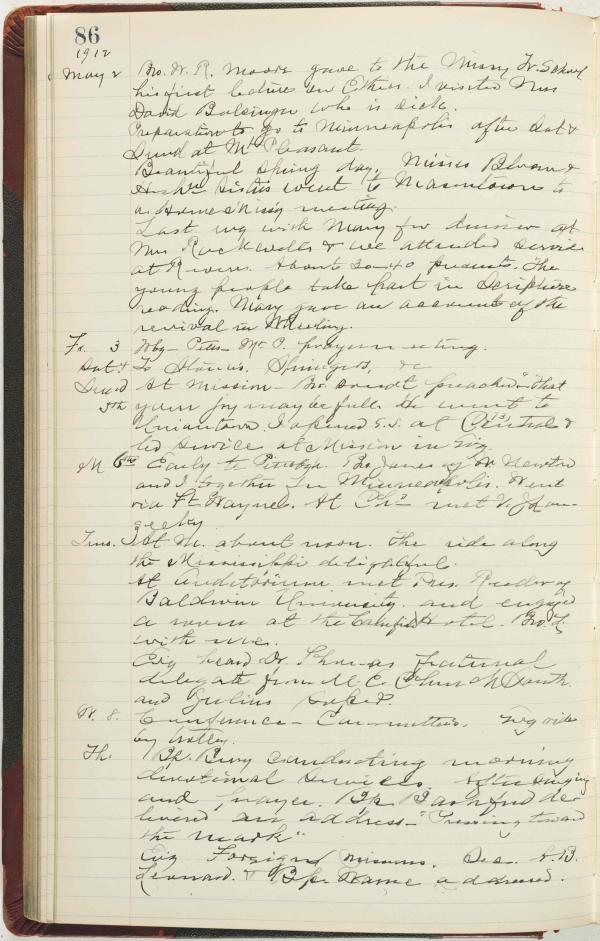 86
1912
May 2 Bro. W. R. Moore gave to the Missy Tr. School
his first lecture on Ethics. I visited Mrs
David Balsinger who is sick.
Preparation to go to Minneapolis after Sat &
Sund at Mt Pleasant.
Beautiful Spring day. Misses Bloom &
sisters went to Masontown to
a Home Missy meeting.
Last evg with Mary for dinner at
Mrs Rockwells & we attended service
at Rivers. About 30-40 presents. The
young people take part in Scripture
reading. Mary gave an account of the
revival in Wheeling.
Fr. 3 Mt P. prayer meeting.
Sat. 4 To &c
Sund At Mission - Bro. preached "That
5th your joy may be full. He went to
Uniontown. I opened S.S. at Central &
led service at Mission in Evg.
M 6th Early to Pittsbgh. Bro Jones of W. Newton
and I together for Minneapolis. Went
via Ft. Wayne. At Ch° met
Tues. 7 At M. about noon. The ride along
the Mississippi delightful.
At Auditorium met Pres. Reeder of
Baldwin University and engaged
a room at the Hotel. Bro. J.
with me.
Evg heard Dr. Thomas fraternal
delegate from M.E. Church South
and Julius
W. 8. Conference - Committees. Evg ride
by trolley.
Th. Bp. Berry conducting morning
devotional services. After singing
and prayer. Bp Bashford de-
livered an address - "Pressing toward
the mark"
Evg Foreign Missions. Sec. A. B.
Leonard. & Bp. Warne addressed.